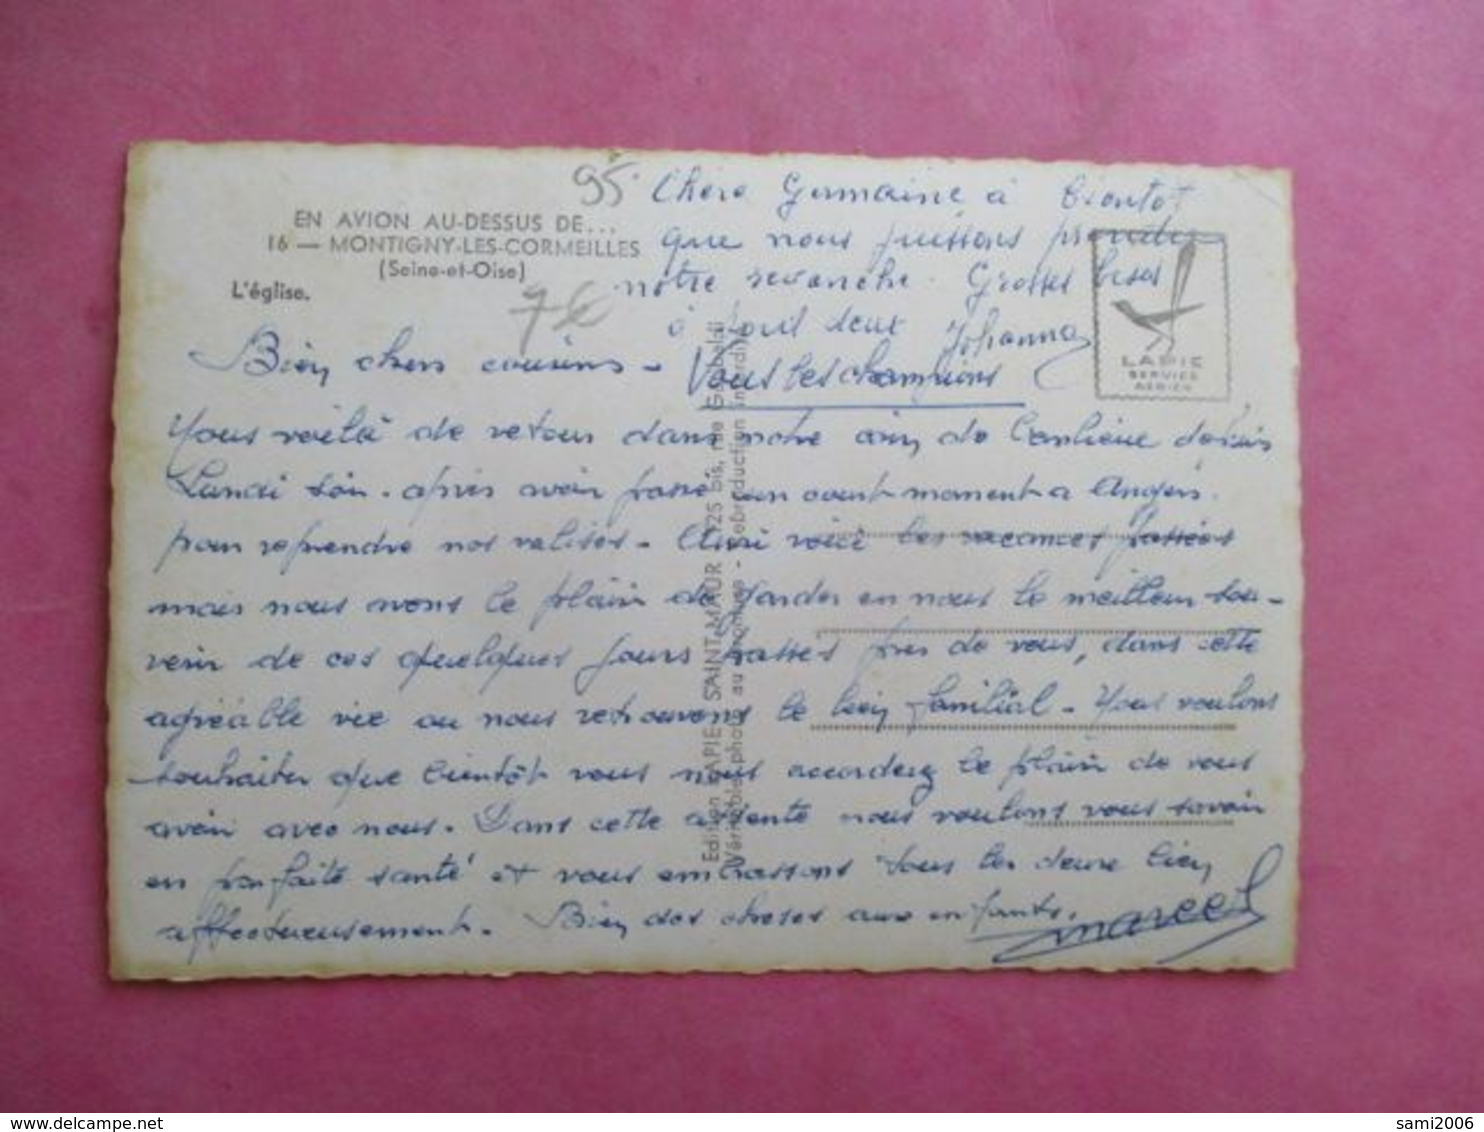 EN AVION AU-DESSUS DE...
16 — MONTIGNY-LES-CORMEILLES
(Seine-et-Oise)
L'église.
95
7€
Chère Germaine à bientot
que nous puissons prendre
notre revanche. Grosses bises
à tout deux Johanna
Vous les champions
LAPIE
SERVICE
AERIEN
Bien chers cousins -
Nous voilà de retour dans notre coin de banlieue depuis
Lundi soir. après avoir passé un court moment a Angers.
pour reprendre nos valises. Ainsi voici les vacances passées
mais nous avons le plaisir de garder en nous le meilleur sou-
venir de ces quelques jours passés près de vous, dans cette
agréable vie ou nous retrouvons le lien familial. Nous voulons
souhaiter que bientôt vous nous accorderez le plaisir de vous
avoir avec nous. Dans cette attente nous voulons vous savoir
en parfaite santé et vous embrassons tous les deux bien
affectueusement. Bien des choses aux enfants.
Marcel
Edition LAPIE SAINT-MAUR 125 bis, rue Garibaldi
Véritable photo au bromure - Reproduction interdite
sami2006